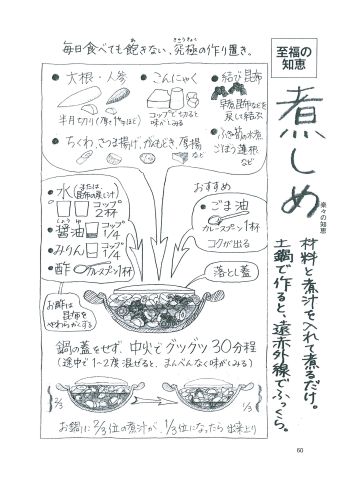 至福の
知恵
煮しめ
楽々の知恵
材料と煮汁を入れて煮るだけ。
土鍋で作ると、遠赤外線でふっくら。
毎日食べても飽きない、究極の作り置き。
大根・人参
こんにゃく
コップで切ると
味がしみる
結び昆布
早煮昆布などを
戻して結ぶ
ちくわ、さつま揚げ、がんもどき、厚揚げ
など
ふき、筍の水煮、
ごぼう、蓮根
など
水(または、
昆布の戻し汁)
コップ
2杯
しょうゆ
醤油 コップ
1/4
みりん コップ
1/4
酢 カレースプーン1杯
お酢は
昆布を
やわらかくする
おすすめ
ごま油
カレースプーン1杯
コクが出る
落とし蓋
鍋の蓋をせず、中火でグツグツ30分程
(途中で1~2度混ぜると、まんべんなく味がしみる)
2/3
1/3
お鍋に2/3位の煮汁が、1/3位になったら出来上り
60